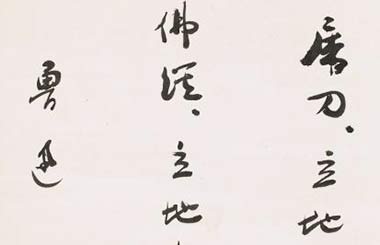 屠刀、立地
佛經、立地
魯迅